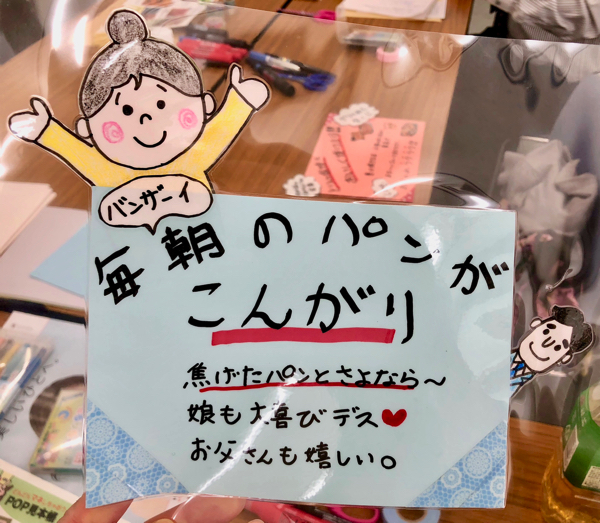 バンザーイ
毎朝のパンが
こんがり
焦げたパンとさよなら〜
娘も大喜びデス♥
お父さんも嬉しい。
POP見本帳